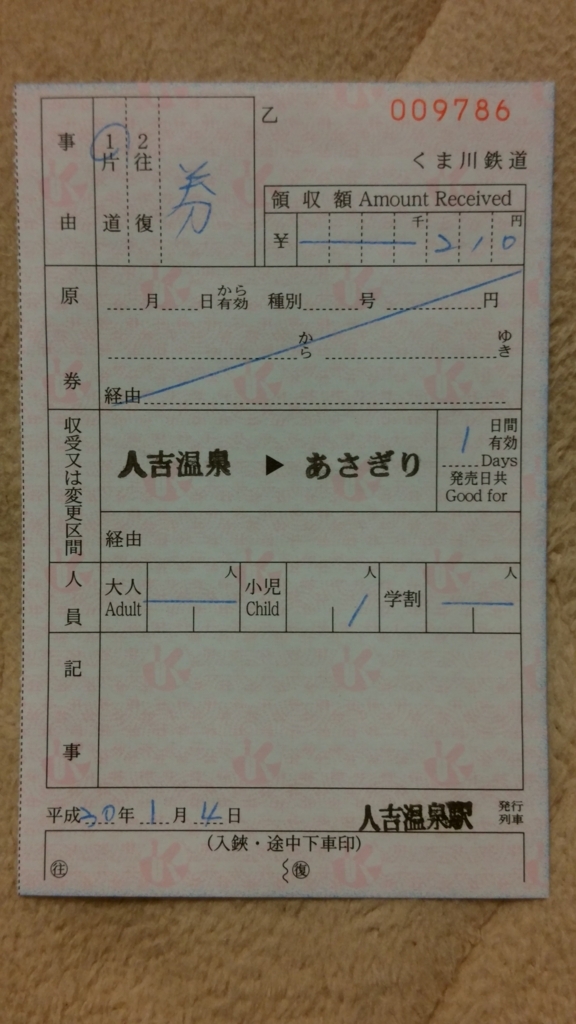 乙
009786
くま川鉄道
事由
1片道
2往復
券
領収額 Amount Received
¥ 千 円
210
原券
月 日から有効 種別 号 円
から ゆき
経由
収受又は変更区間
人吉温泉 ▶ あさぎり
1 日間有効
Days
発売日共
Good for
経由
人員
大人 Adult 人
小児 Child 1人
学割 人
記事
平成30年1月4日
人吉温泉駅
発行列車
(入鋏・途中下車印)
往 復